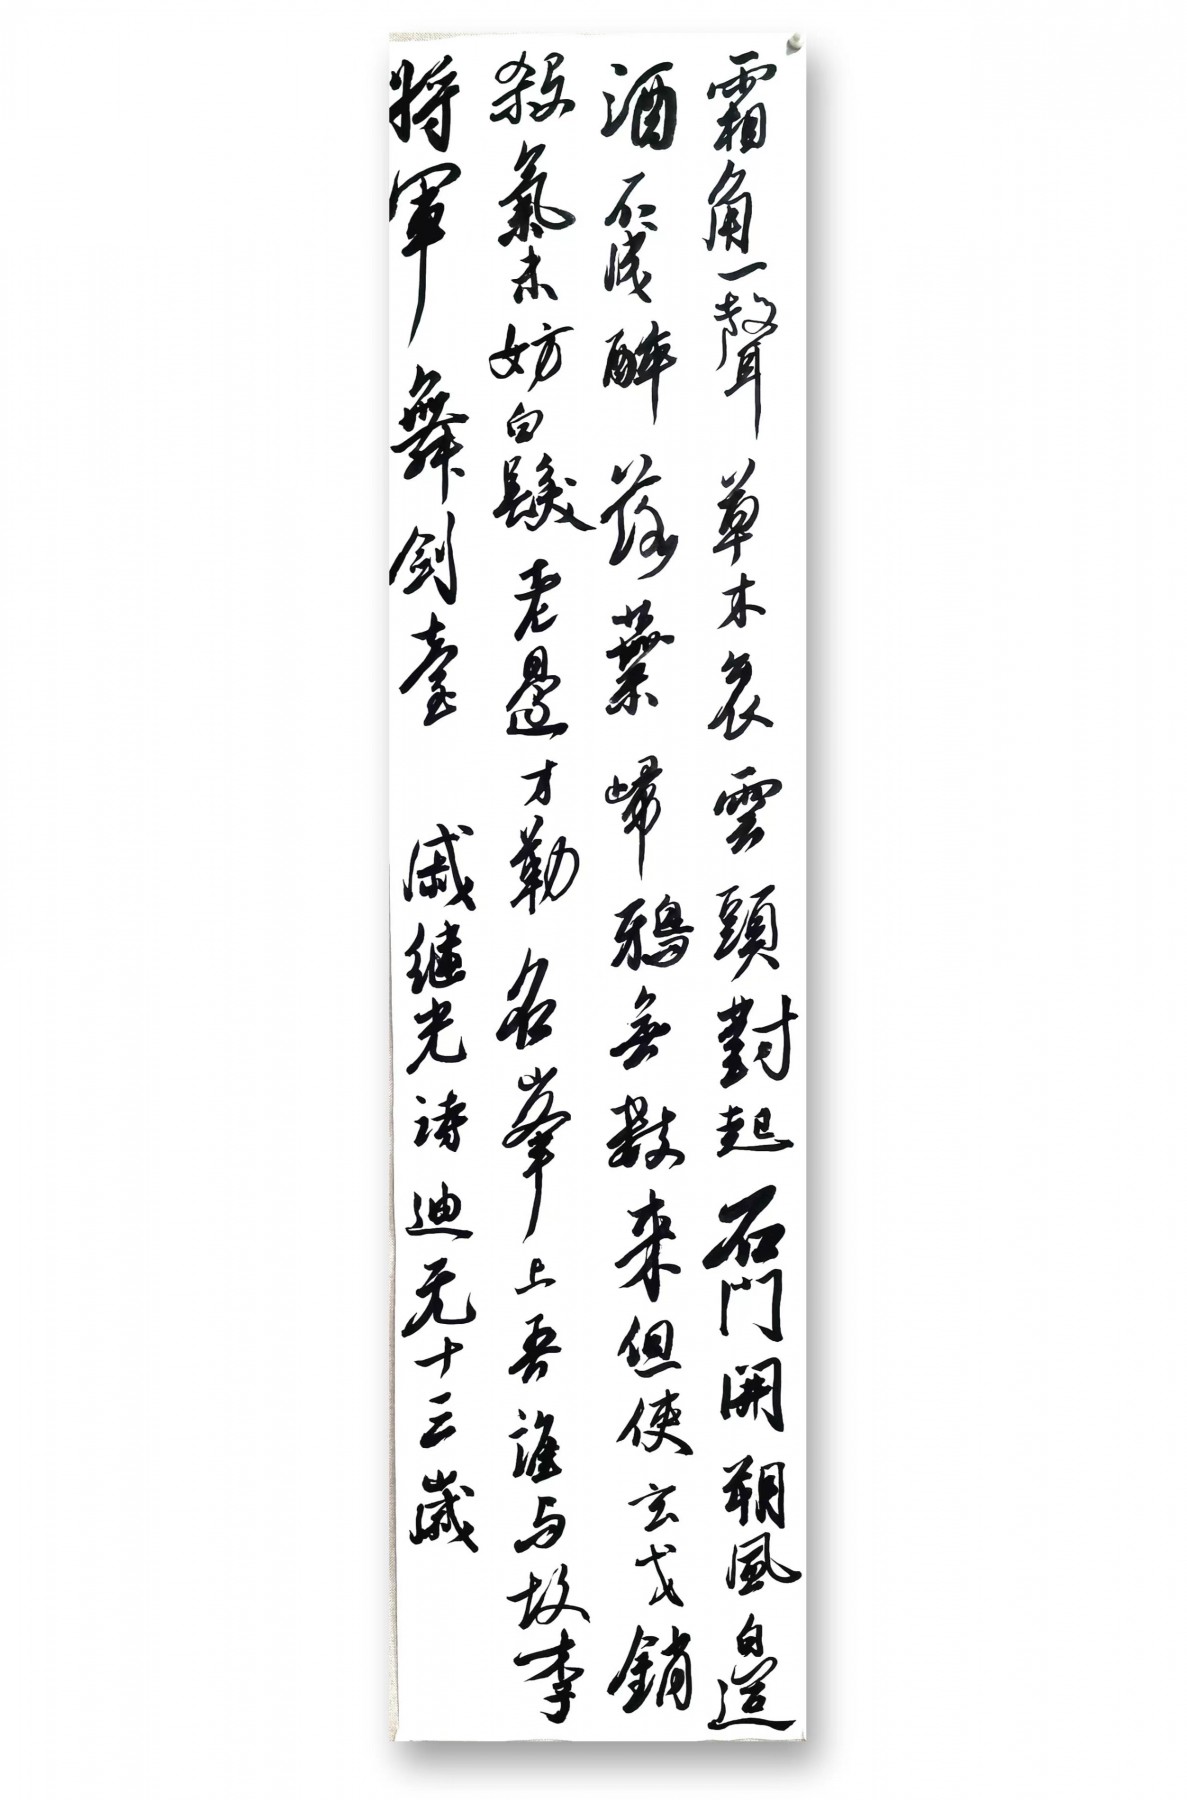 霜角一聲草木哀雲頭對起石門開朔風邊
酒不成醉落葉歸鴉無數来但使玄戈銷
殺氣未妨白髮老邊才勒名峯上吾誰与故李
将軍舞劍臺 戚继光诗 迪无十三歲